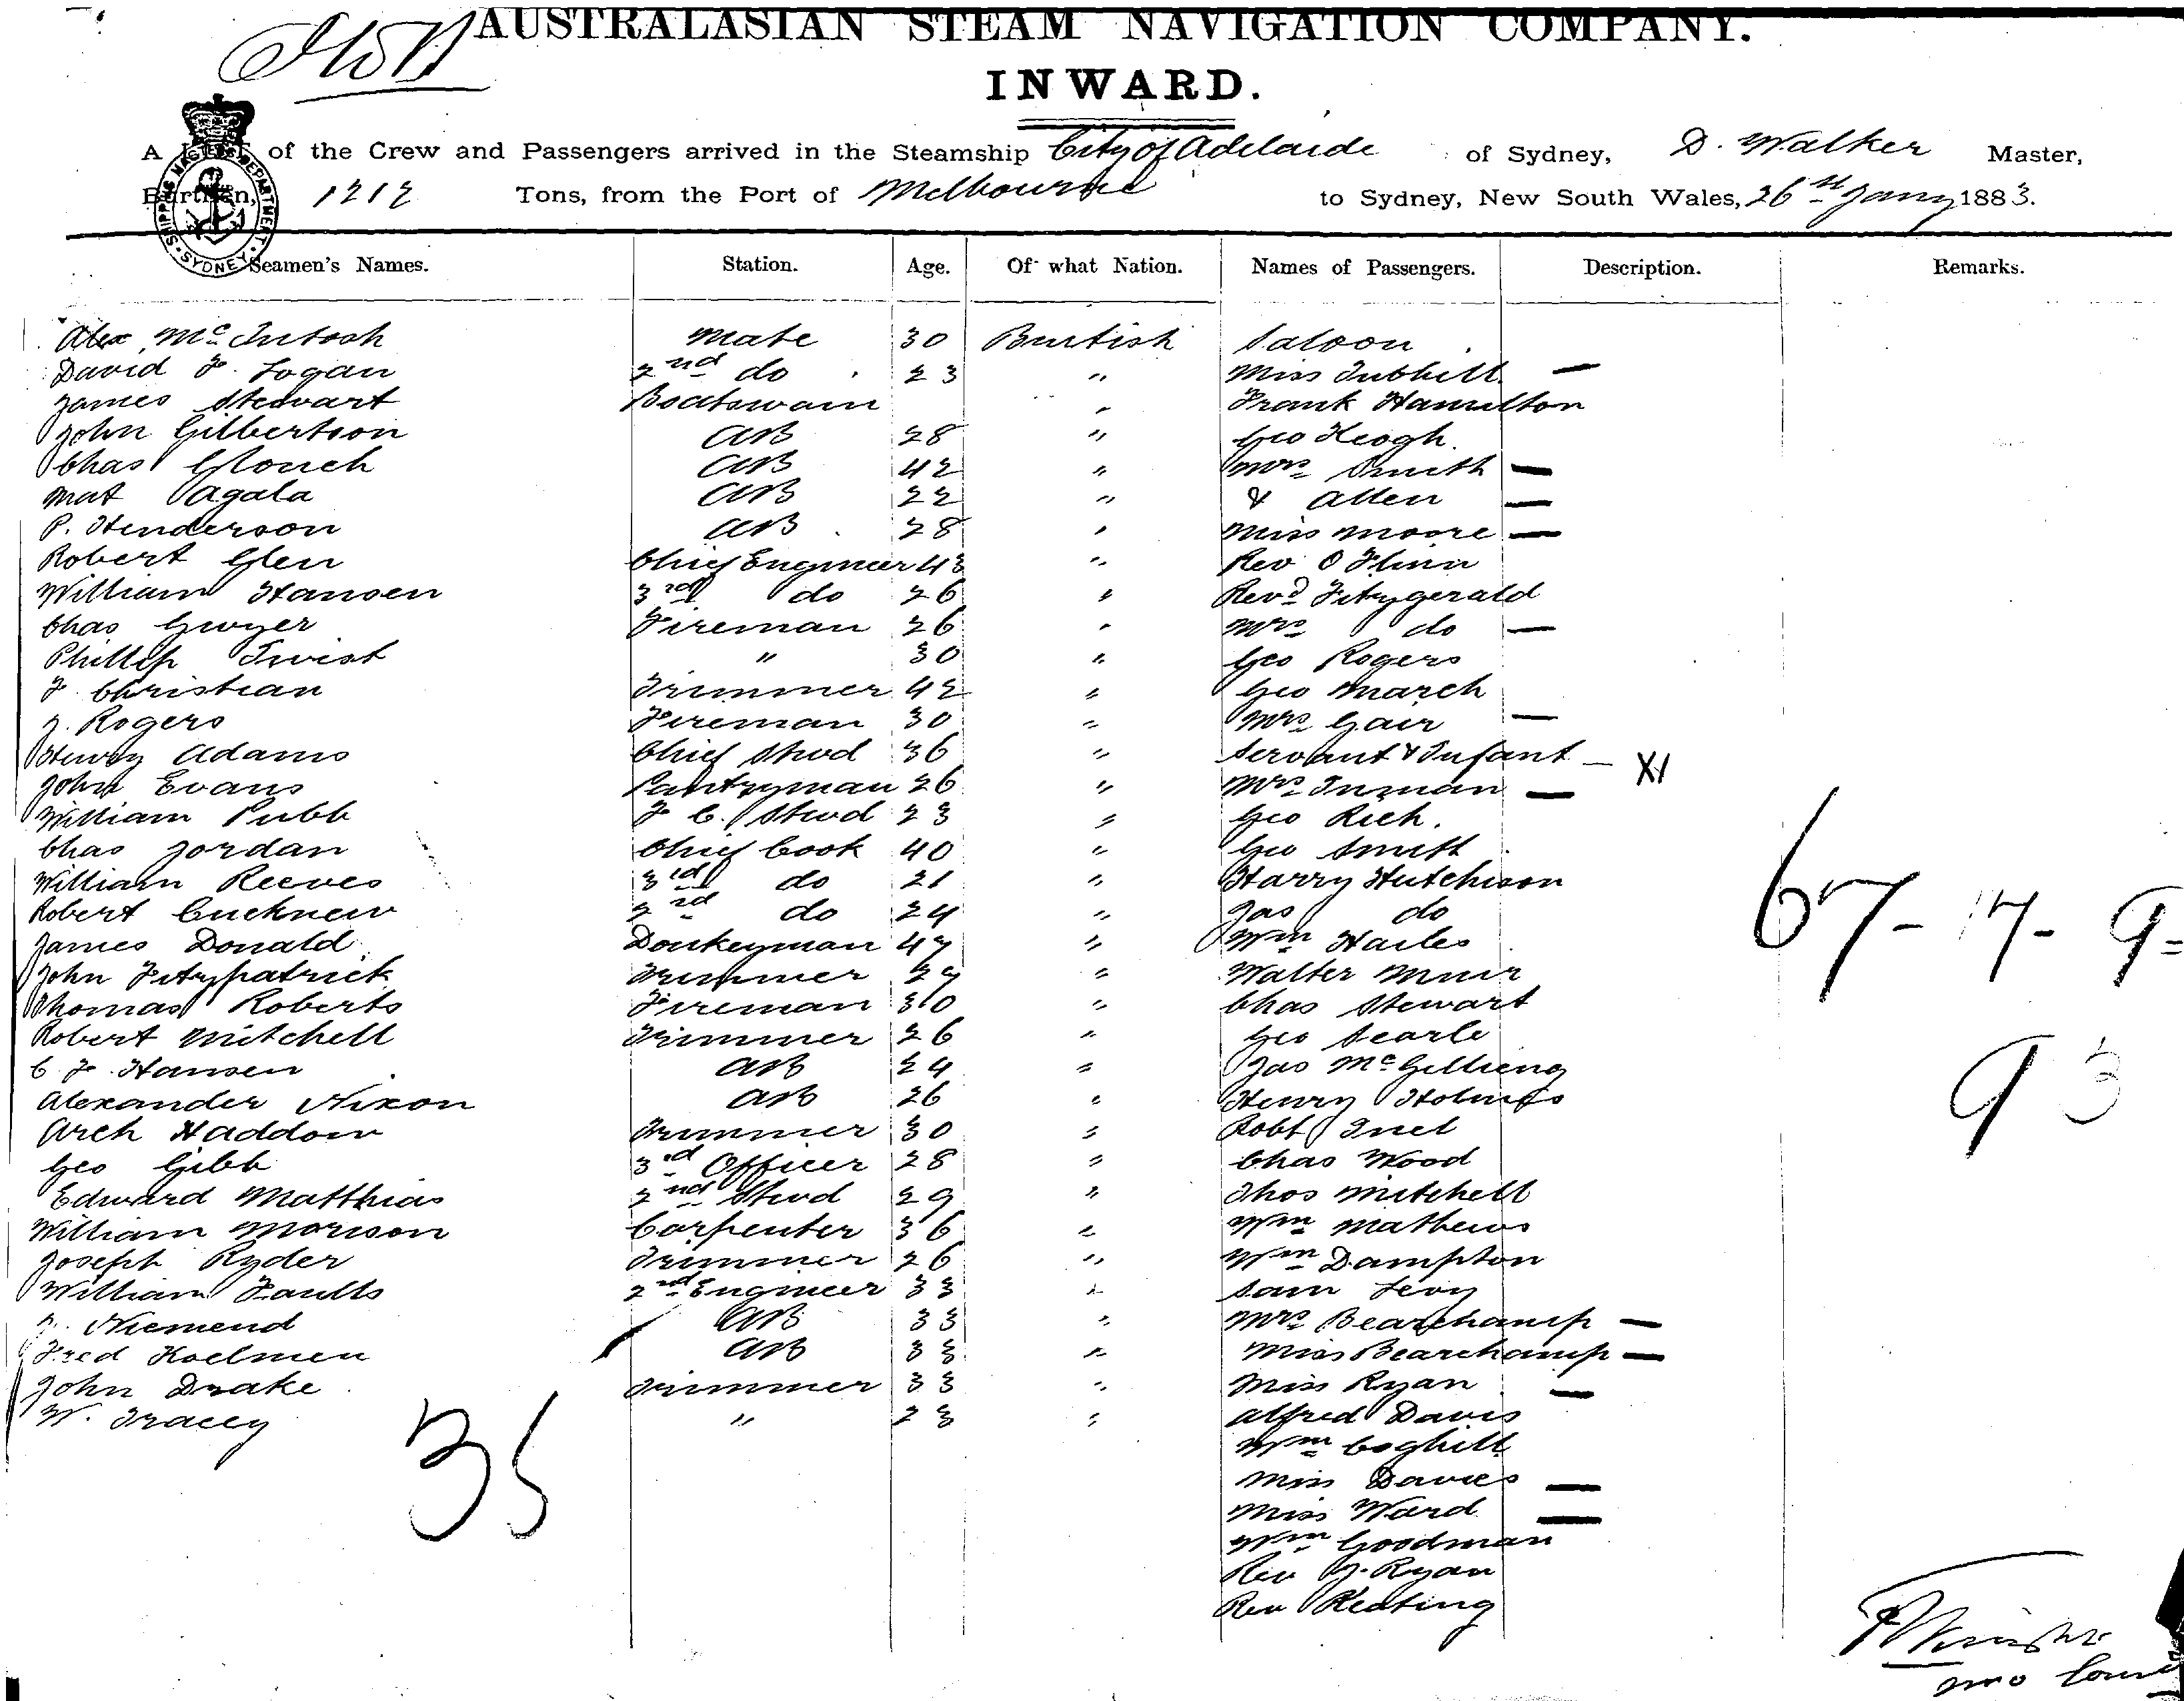 AUSTRALASIAN STEAM NAVIGATION COMPANY.
INWARD.
A List of the Crew and Passengers arrived in the Steamship City of Adelaide of Sydney, D. Walker Master,
Burthen, 1212 Tons, from the Port of Melbourne to Sydney, New South Wales, 26th Jany 1883.
SHIPPING MASTER'S DEPARTMENT SYDNEY
Seamen's Names. Station. Age. Of what Nation. Names of Passengers. Description. Remarks.
Alex McIntosh Mate 30 British Saloon
David F. Logan 2nd do 23 " Miss Tubhill —
James Stewart Boatswain " Frank Hamilton
John Gilbertson AB 28 " Geo Keogh.
Chas Clouch AB 42 " Mrs Smith —
Mat Agala AB 22 " & Allen —
P. Henderson AB 28 " Miss Moore —
Robert Glen Chief Engineer 43 " Rev O Flinn
William Hansen 3rd do 26 " Revd Fitzgerald
Chas Gwyer Fireman 26 " Mrs do —
Phillip Twist " 30 " Geo Rogers
F. Christian Trimmer 42 " Geo March
J. Rogers Fireman 30 " Mrs Gair —
Henry Adams Chief Stwd 36 " Servant & Infant —
John Evans Pantryman 26 " Mrs Inman —
William Pubb F. C. Stwd 23 " Geo Rich.
Chas Jordan Chief Cook 40 " Geo Smith
William Reeves 3rd do 21 " Harry Hutchison
Robert Cucknew 2nd do 24 " Jas do
James Donald Donkeyman 47 " Wm Hailes
John Fitzpatrick Trimmer 29 " Walter Muir
Thomas Roberts Fireman 30 " Chas Stewart
Robert Mitchell Trimmer 26 " Geo Searle
C. F. Hansen AB 24 " Jas
Alexander Nixon AB 26 " Henry Holmes
Arch Haddow Trimmer 30 " Robt
Geo Gibb 3rd Officer 28 " Chas Wood
Edward Matthias 2nd Stwd 29 " Thos Mitchell
William Morison Carpenter 36 " Wm Mathews
Joseph Ryder Trimmer 26 " Wm Dampton
William Faulls 2nd Engineer 33 " Sam Levy
Niemend AB 33 " Mrs Bearchamp —
Fred Koelmen AB 33 " Miss Bearchamp —
John Drake Trimmer 33 " Miss Ryan —
W. Tracey " 23 " Alfred Davis
Wm Coghill
Miss Davies —
Miss Ward —
Wm Goodman
Rev J. Ryan
Rev Keating
35
67-17-9=
93